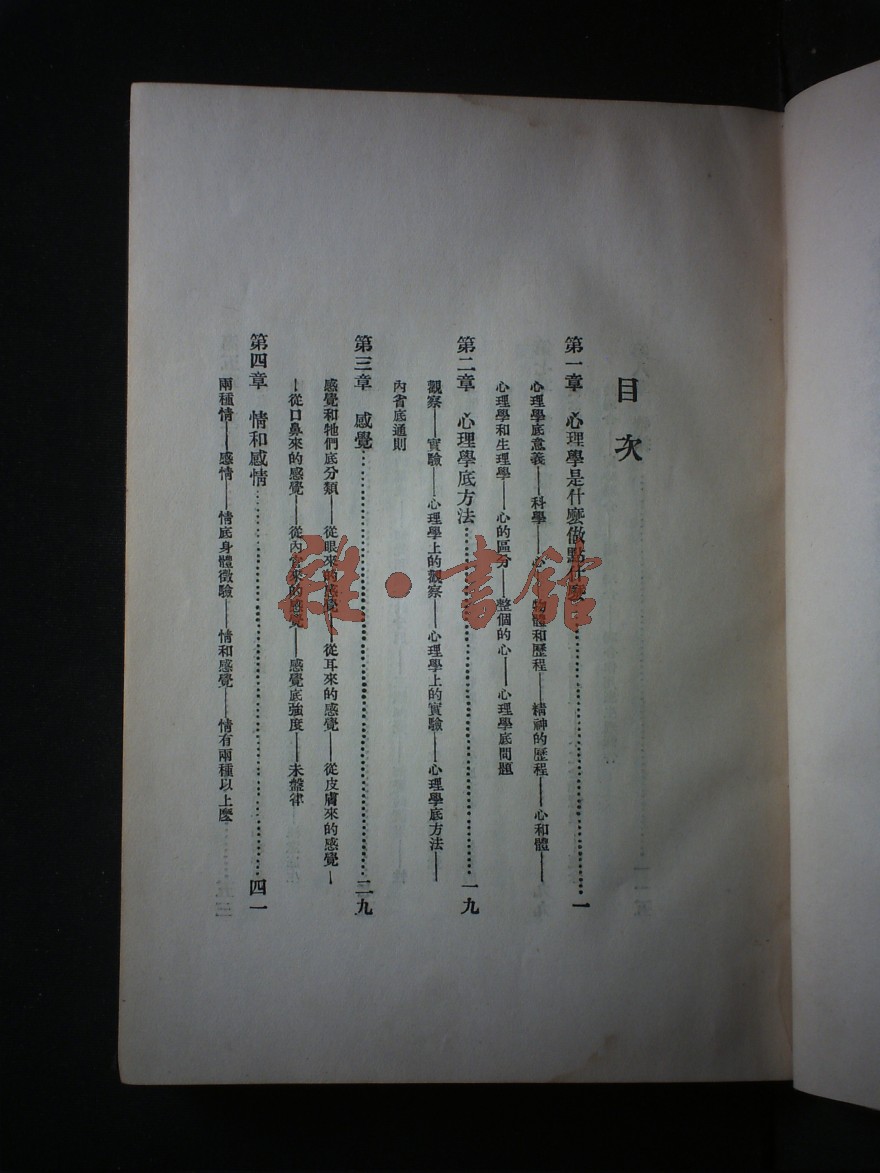 目次
第一章　心理學是什麼做點什麼……一
心理學底意義——科學——心——物體和歷程——精神的歷程——心和體——
心理學和生理學——心的區分——整個的心——心理學底問題
第二章　心理學底方法……一九
觀察——實驗——心理學上的觀察——心理學上的實驗——心理學底方法——
內省底通則
第三章　感覺……二九
感覺和牠們底分類——從眼來的感覺——從耳來的感覺——從皮膚來的感覺—
—從口鼻來的感覺——從內官來的感覺——感覺底強度——未盤律
第四章　情和感情……四一
兩種情——感情——情底身體徵驗——情和感覺——情有兩種以上麼
雜·書館